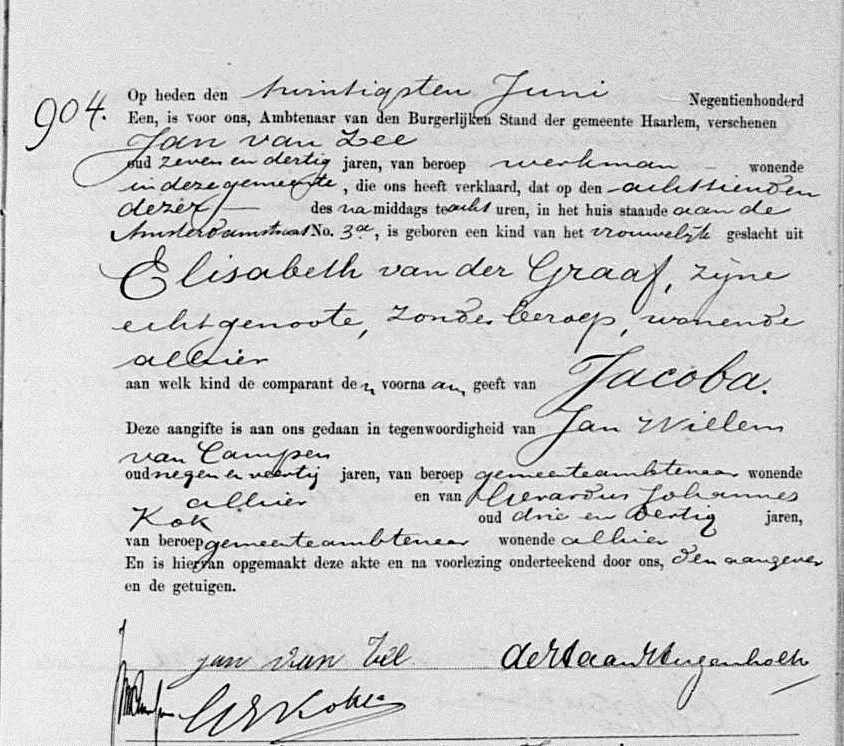 904.
Op heden den twintigsten Juni Negentienhonderd
Een, is voor ons, Ambtenaar van den Burgerlijken Stand der gemeente Haarlem, verschenen
Jan van Zee
oud zeven en dertig jaren, van beroep werkman wonende
in deze gemeente, die ons heeft verklaard, dat op den achttienden
dezer des na middags te acht uren, in het huis staande aan de
Amsterdamstraat No. 3a, is geboren een kind van het vrouwelijk geslacht uit
Elisabeth van der Graaf, zijne
echtgenoote, zonder beroep, wonende
alhier
aan welk kind de comparant den voornaam geeft van Jacoba.
Deze aangifte is aan ons gedaan in tegenwoordigheid van Jan Willem
van Campen
oud negen en veertig jaren, van beroep gemeenteambtenaar wonende
alhier en van Gerardus Johannes
Kok oud drie en dertig jaren,
van beroep gemeenteambtenaar wonende alhier
En is hiervan opgemaakt deze akte en na voorlezing onderteekend door ons, den aangever
en de getuigen.
jan van Zee de Haan Hugenholtz
GJKok